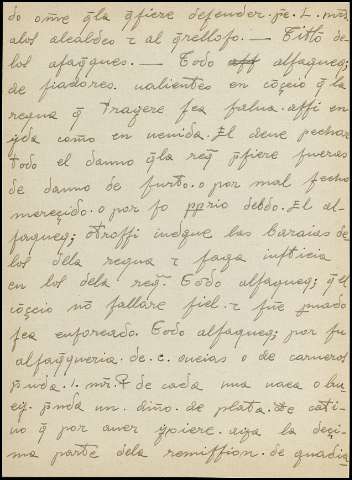 do om̃e q̃la q̃fiere defender. pe. L. mr̃s
alos alcaldes τ al q̃rellofo. — Titt̃o de
los afaq̃ques. — Todo aff alfaqueq;
de fiadores. ualientes en cõçeio q̃ la
requa q̃ tragere fea falua. affi en
yda como en uenida. El deue pechar
todo el danno q̃la req̃ p̃fiere fueras
de danno de furto. o por mal fecho
mereçido. o por fo pp̃rio debdo. El al-
faqueq; otroffi iudgue las baraias de
los dela requa τ faga iufticia
en los dela req̃. Todo alfaqueq; q̃ el
cõçeio nõ fallare fiel. τ fuẽ p̃uado
fea enforcado. Todo alfaqueq; por fu
alfaq̃queria. de .c. oueias o de carneros
p̃nda .i. mr̃. de cada una uaca o bu
ey. p̃nda un. din̄o. de plata. de cati-
uo q̃ por auer yxiere. aya la deçi-
ma parte dela remiffion. de quadia